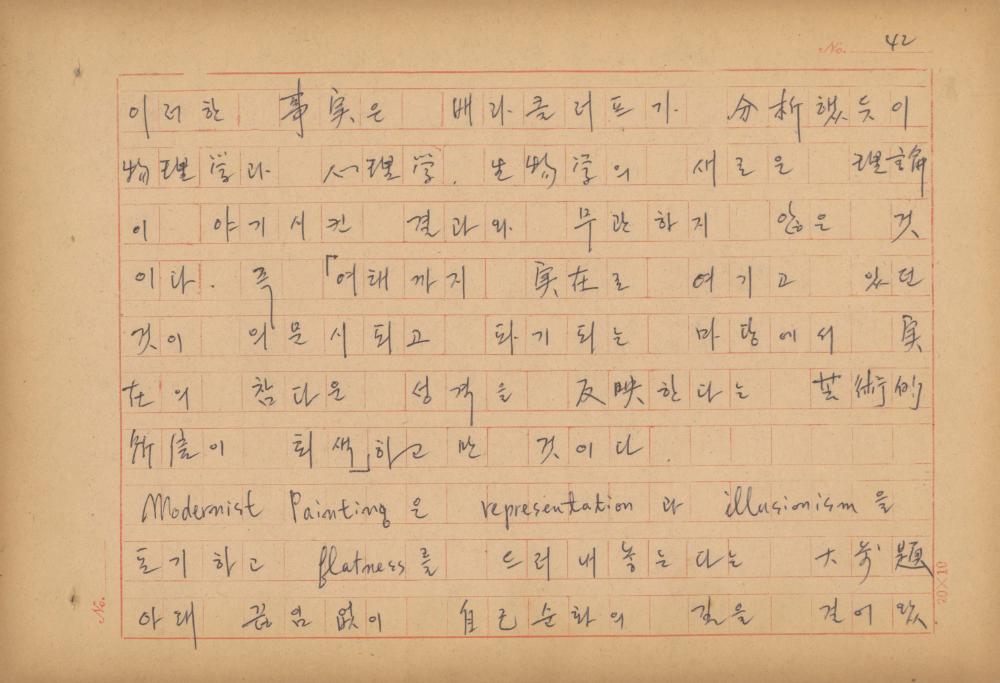 No. 42
이러한 事実은 배라클러프가 分析했듯이
物理学과 心理学, 生物学의 새로운 理論
이 야기시킨 결과와 무관하지 않은 것
이다. 즉 「여태까지 実在로 여기고 있던
것이 의문시되고 파기되는 마당에서 実
在의 참다운 성격을 反映한다는 芸術的
所信이 퇴색」하고 만 것이다.
Modernist Painting은 representation과 illusionism을
포기하고 flatness를 드러내놓는다는 大前題
아래 끊임없이 自己순화의 길을 걸어왔
No.
20×10